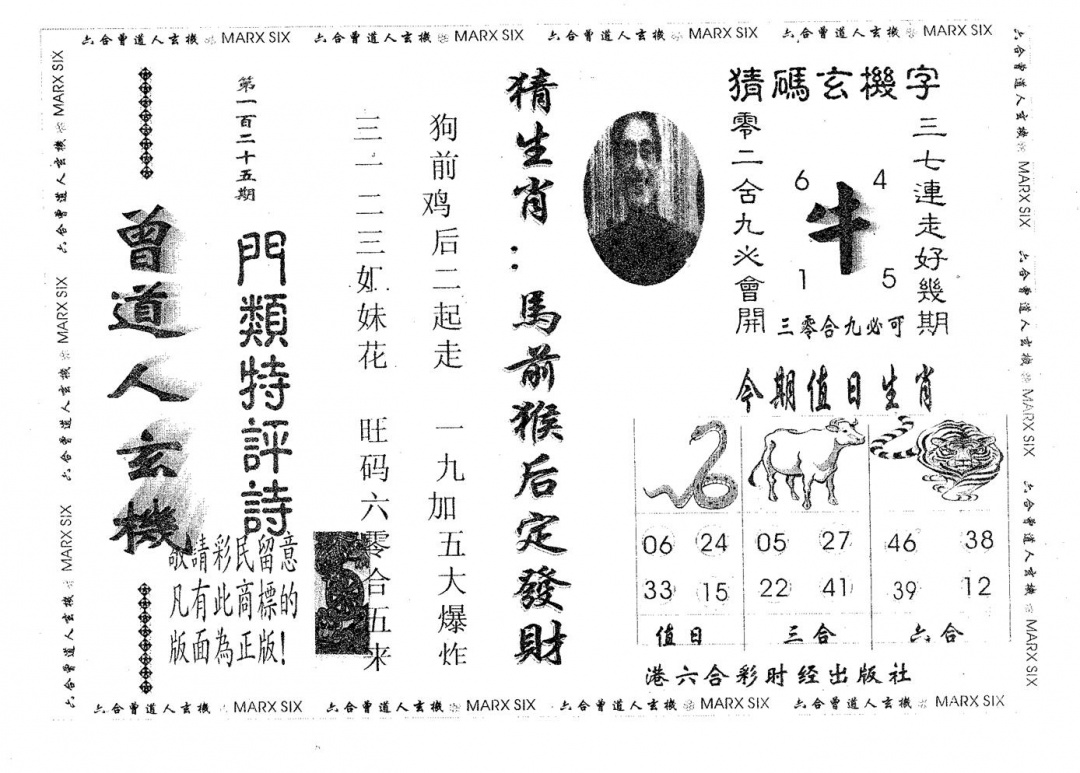 六合曾道人玄機 MARX SIX 六合曾道人玄機 MARX SIX 六合曾道人玄機 MARX SIX 六合曾道人玄機 MARX SIX
六合曾道人玄機 MARX SIX 六合曾道人玄機 MARX SIX 六合曾道人玄機 MARX SIX
曾道人玄機
第一百二十五期
門類特評詩
敬請彩民留意
凡有此商標的
版面為正版!
狗前鸡后二起走 一九加五大爆炸
三一二三姖妹花 旺码六零合五来
猜生肖：馬前猴后定發財
猜碼玄機字
三七連走好幾期
零二合九必會開
6 4
牛
1 5
三零合九必可
今期值日生肖
06 24 05 27 46 38
33 15 22 41 39 12
值日 三合 六合
港六合彩时经出版社
六合曾道人玄機 MARX SIX 六合曾道人玄機 MARX SIX 六合曾道人玄機 MARX SIX
六合曾道人玄機 MARX SIX 六合曾道人玄機 MARX SIX 六合曾道人玄機 MARX SIX 六合曾道人玄機 MARX SIX